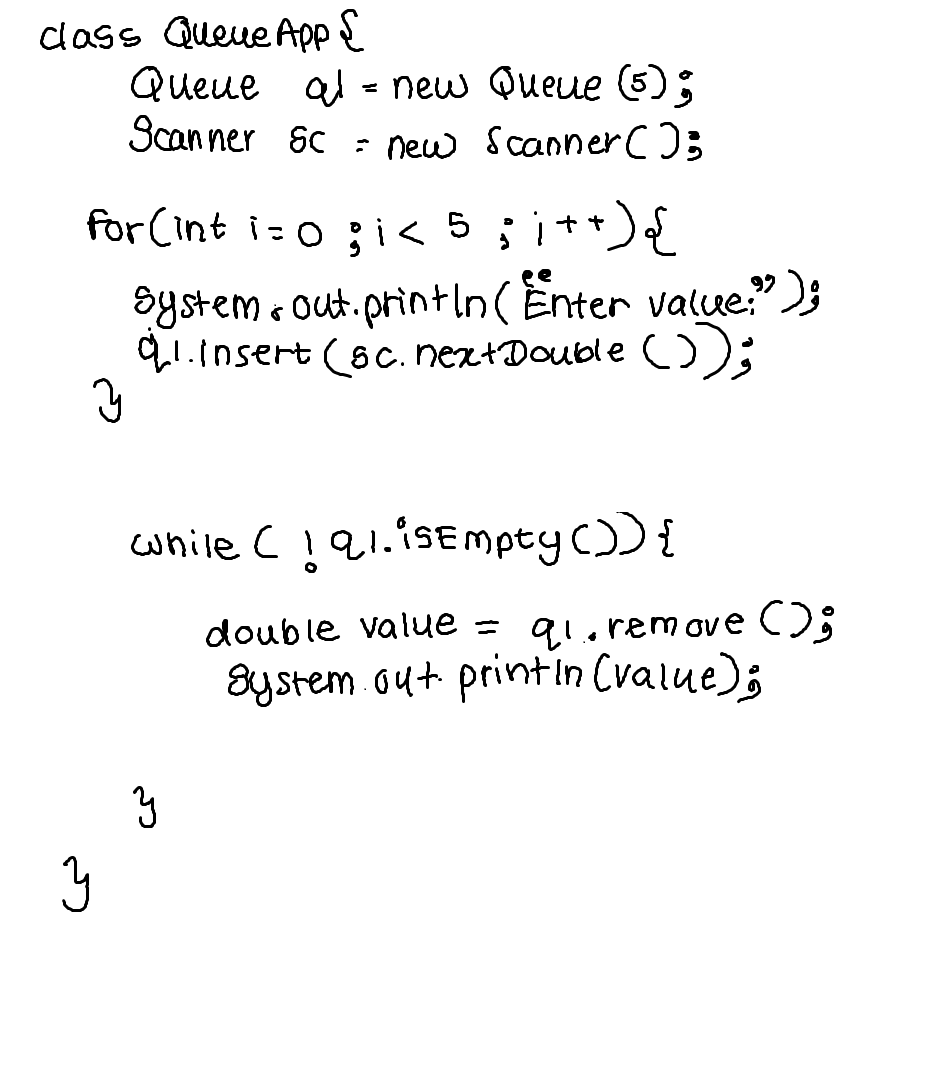 class QueueApp{
Queue q1 = new Queue (5);
Scanner sc = new Scanner();
for(int i=0 ; i< 5 ; i++){
System.out.println(“Enter value:”);
q1.insert(sc.nextDouble ());
}
while ( ! q1.isEmpty()){
double value = q1.remove ();
System.out.println(value);
}
}